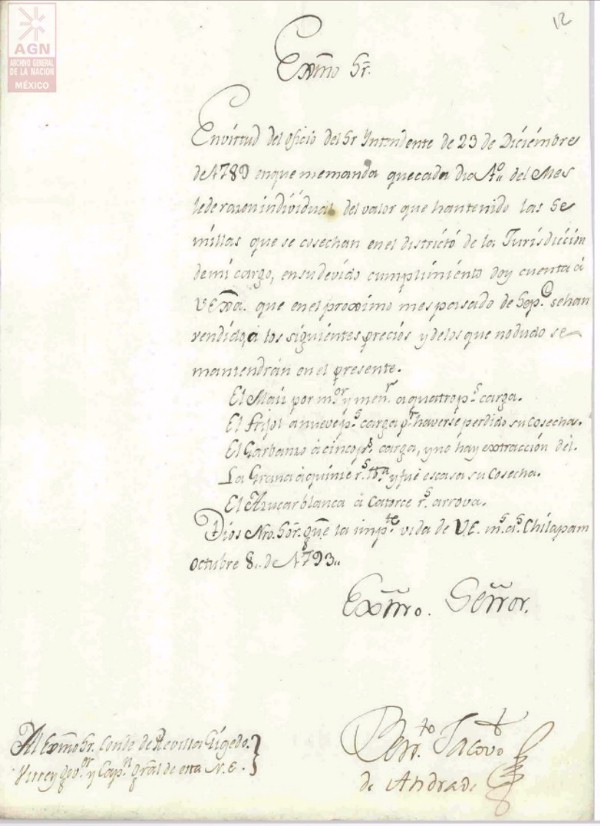 12
AGN
ARCHIVO GENERAL
DE LA NACION
MÉXICO
Exmo Sr.
En virtud del oficio del Sr Yntendente de 23 de Diciembre
de 1789 en que me manda que cada dia 1º del Mes
le de razon individual del valor que han tenido las Se
millas que se cosechan en el districtó de la Jurisdiccion
de mi cargo, en su devido cumplimiento doy cuenta á
VExa. que en el proximo mes pasado de Sepe. se han
vendido, á los siguientes precios y de los que no dudo se
mantendrán en el presente.
El Maiz por mor y menr a quatro ps carga.
El Frijol a nueve ps carga pr haverse perdido su Cosecha.
El Garbanzo á cinco ps carga, y no hay extracción dél.
La Grana á quinze rs lba y fué escasa su Cosecha.
El Azucar blanca á Catorce rs arrova.
Dios Nro. Sor. gue la impte vida de VE. ms as Chilapam
Octubre 8,, de 1793,,
Exmo. Señor.
Al Exmo Sr. Conde de Revilla Gigedo.
Virrey Gor y Capn Gral de esta N.E.
Bento Jacovo
de Andrade